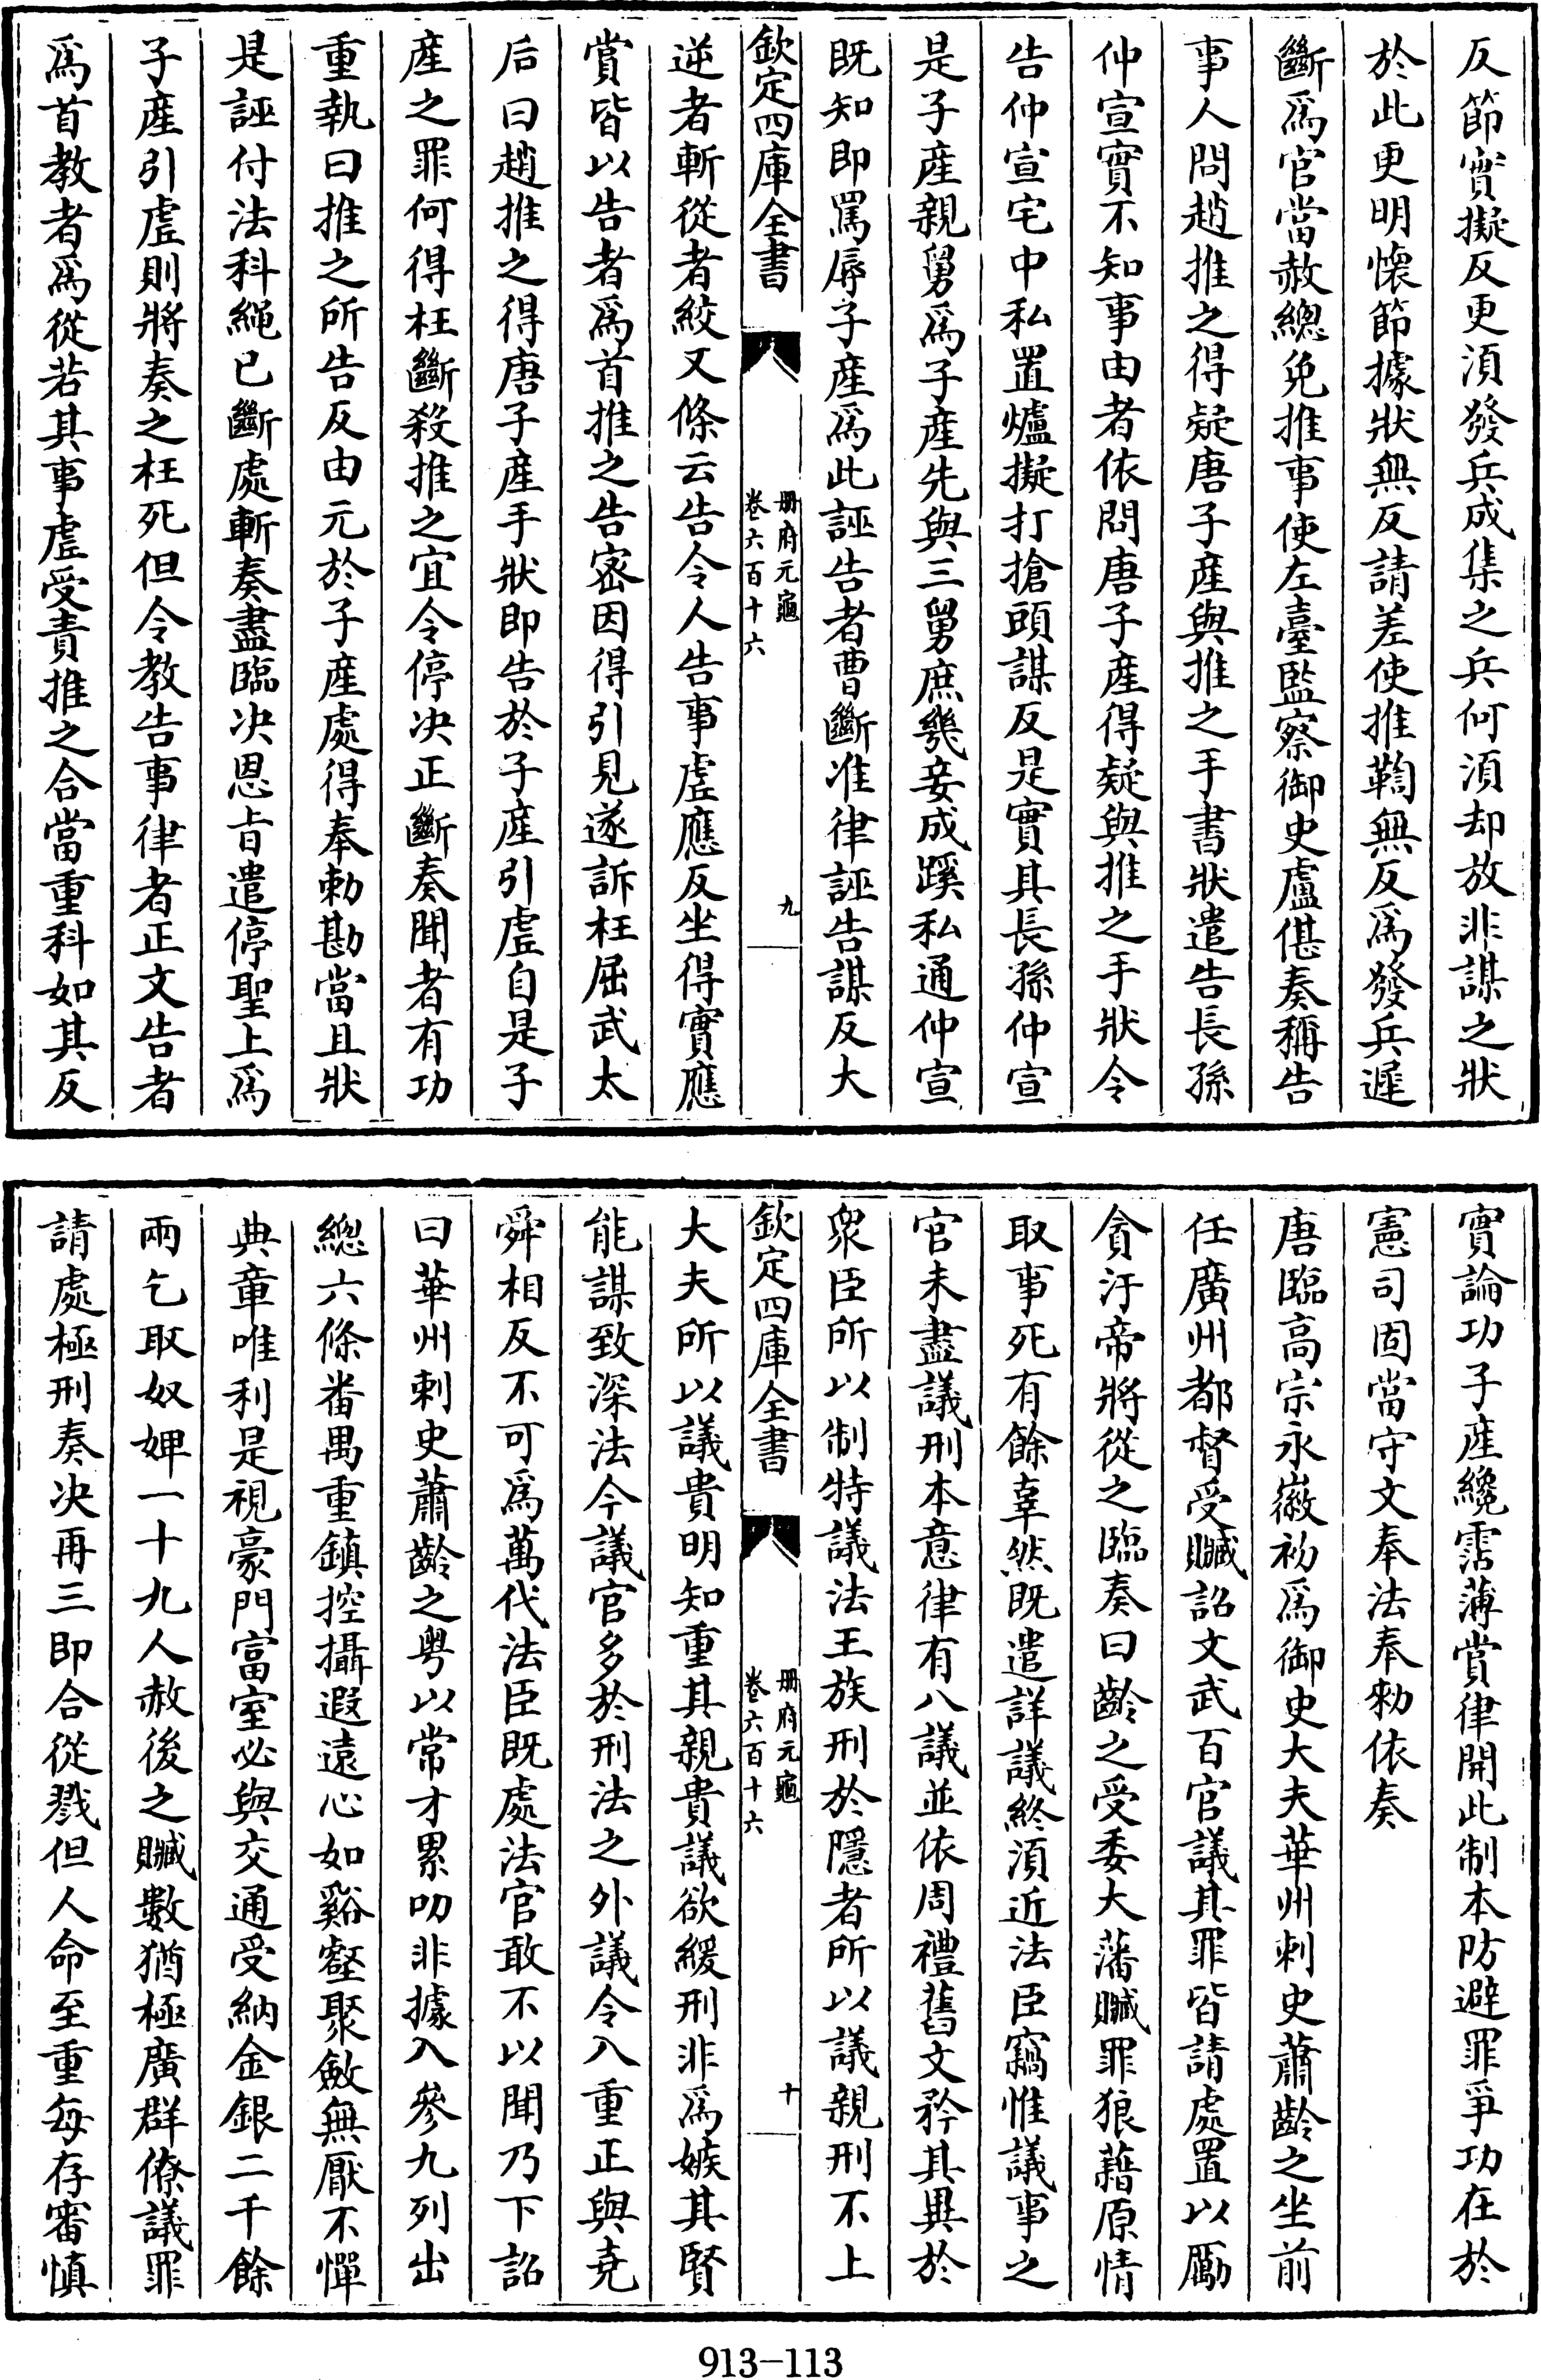 反節實擬反更須發兵成集之兵何須却放非謀之狀
於此更明懷節據狀無反請差使推鞫無反爲發兵遲
斷爲官當赦總免推事使左臺監察御史盧偡奏稱告
事人問趙推之得疑唐子産與推之手書狀遣告長孫
仲宣實不知事由者依問唐子産得疑與推之手狀令
告仲宣宅中私置爐擬打搶頭謀反是實其長孫仲宣
是子産親舅爲子産先與三舅庶㡬妾成蹊私通仲宣
既知即罵辱子産爲此誣告者曹斷准律誣告謀反大
欽定四庫全書
册府元龜
卷六百十六
九
逆者斬從者絞又條云告令人告事虛應反坐得實應
賞皆以告者爲首推之告密因得引見遂訴枉屈武太
后曰趙推之得唐子産手狀即告於子産引虛自是子
産之罪何得枉斷殺推之宜令停决正斷奏聞者有功
重執曰推之所告反由元於子産處得奉勅勘當且狀
是誣付法科繩已斷處斬奏盡臨决恩㫖遣停聖上爲
子産引虛則將奏之枉死但令教告事律者正文告者
爲首教者爲從若其事虛受責推之合當重科如其反
實論功子産纔霑薄賞律開此制本防避罪爭功在於
憲司固當守文奉法奉勅依奏
唐臨高宗永徽初爲御史大夫華州刺史蕭齡之坐前
任廣州都督受贓詔文武百官議其罪皆請處置以勵
貪汙帝將從之臨奏曰齡之受委大藩贓罪狼藉原情
取事死有餘辜然既遣詳議終須近法臣竊惟議事之
官未盡議刑本意律有八議並依周禮舊文矜其異於
衆臣所以制特議法王族刑於隱者所以議親刑不上
欽定四庫全書
册府元龜
卷六百十六
十
大夫所以議貴明知重其親貴議欲緩刑非爲嫉其賢
能謀致深法今議官多於刑法之外議令入重正與堯
舜相反不可爲萬代法臣既處法官敢不以聞乃下詔
曰華州刺史蕭齡之粤以常才累叨非據入參九列出
總六條番禺重鎮控攝遐遠心如谿壑聚斂無厭不憚
典章唯利是視豪門富室必與交通受納金銀二千餘
兩乞取奴婢一十九人赦後之贓數猶極廣群僚議罪
請處極刑奏决再三即合從戮但人命至重每存審慎
913-113